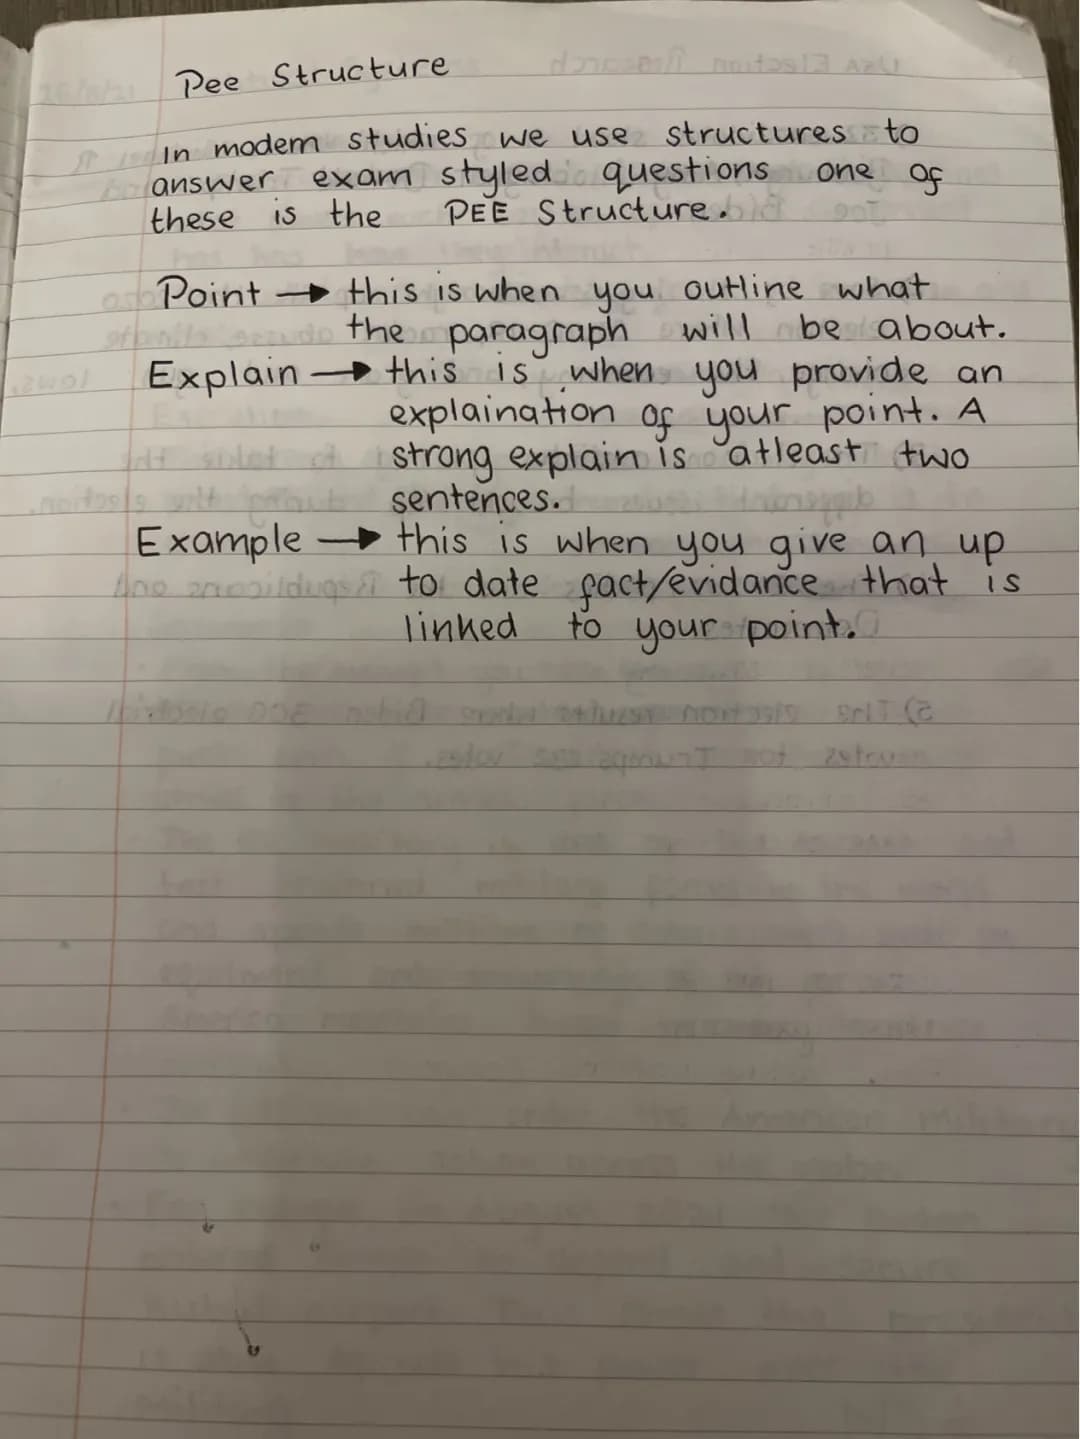 Pee Structure
In modern studies we use structures to
answer exam styled questions one of
these is the PEE Structure.
Point → this is when you outline what
the paragraph will be about.
Explain → this is when you provide an
explaination of your point. A
strong explain is atleast two
sentences.
Example → this is when you give an up
to date fact/evidance that is
linked to your point.